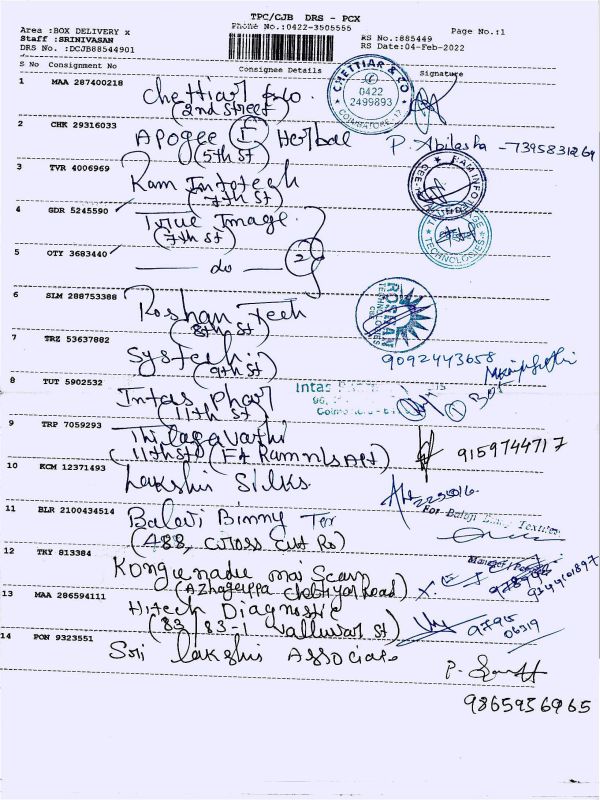 TPC/CJB DRS - PCX
Area :BOX DELIVERY x
Phone No.:0422-3505555
Page No.:1
Staff :SRINIVASAN
RS No.:885449
DRS No. :DCJB88544901
RS Date:04-Feb-2022
S No Consignment No Consignee Details Signature
1 MAA 287400218 Chettiar & co.
(2nd street)
CHETTIAR & CO
0422
2499893
COIMBATORE-12
2 CHK 29316033 Apogee Herbal
(5th st)
P. Abilasha - 7395831269
3 TVR 4006969 Ram Infotech
(7th st)
4 GDR 5245590 True Image.
(7th st)
TECHNOLOGIES
5 OTY 3683440 — do — 2
6 SLM 288753388 Roshan Tech
(8th st)
ROSHAN
TECHNOLOGIES
7 TRZ 53637882 Systech
(9th st)
9092443658
8 TUT 5902532 Intas phar
(11th st)
Intas
9 TRP 7059293 Thilagavathi
(11th st)
9159744717
10 KCM 12371493 Lakshii Silks
11 BLR 2100434514 Balaji Binny Tex
(488, cross cut Rd)
For Balaji Binny Textiles
12 TKY 813384 Kongunadu mai Scan
(Azhagappa chettiyar Road)
Manager
9344101897
13 MAA 286594111 Hitech Diagnostic
(83/83-1 Valluvar st)
9795
06319
14 PON 9323551 Sri lakshi Associate
9865956965